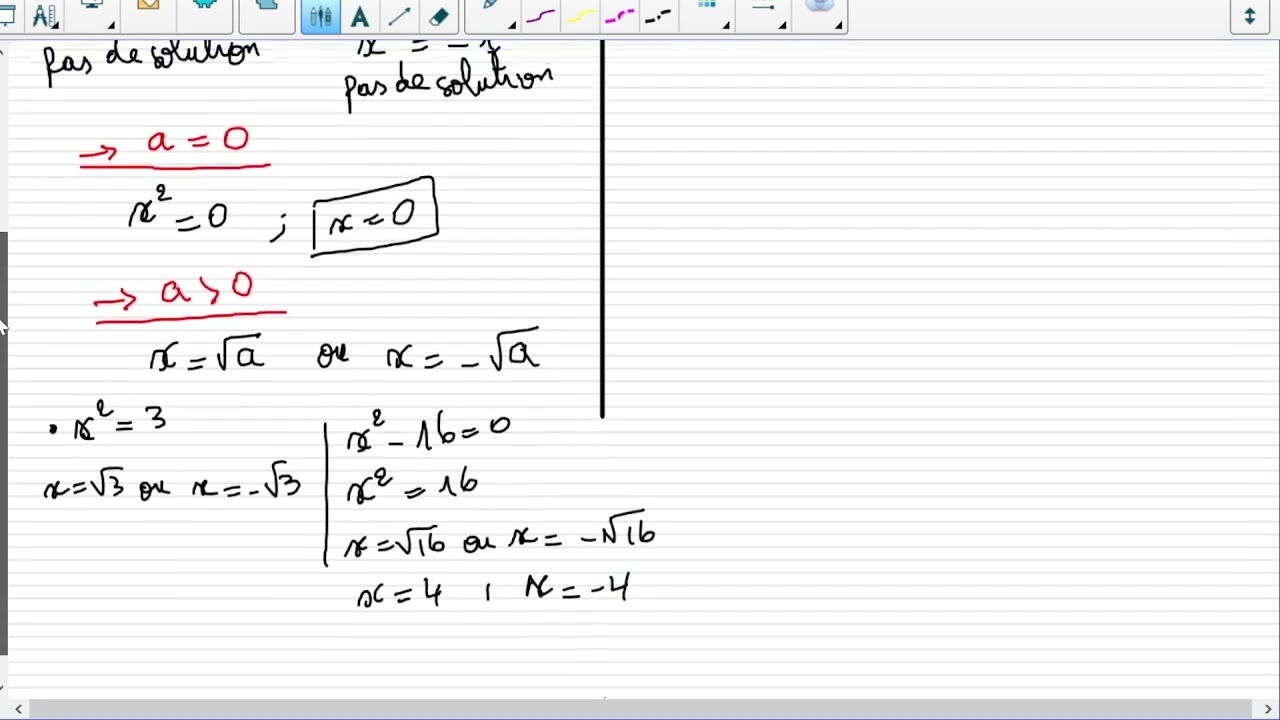 pas de solution
pas de solution
→ a = 0
x² = 0 ; x = 0
→ a > 0
x = √a ou x = -√a
• x² = 3
x = √3 ou x = -√3
x² - 16 = 0
x² = 16
x = √16 ou x = -√16
x = 4 , x = -4